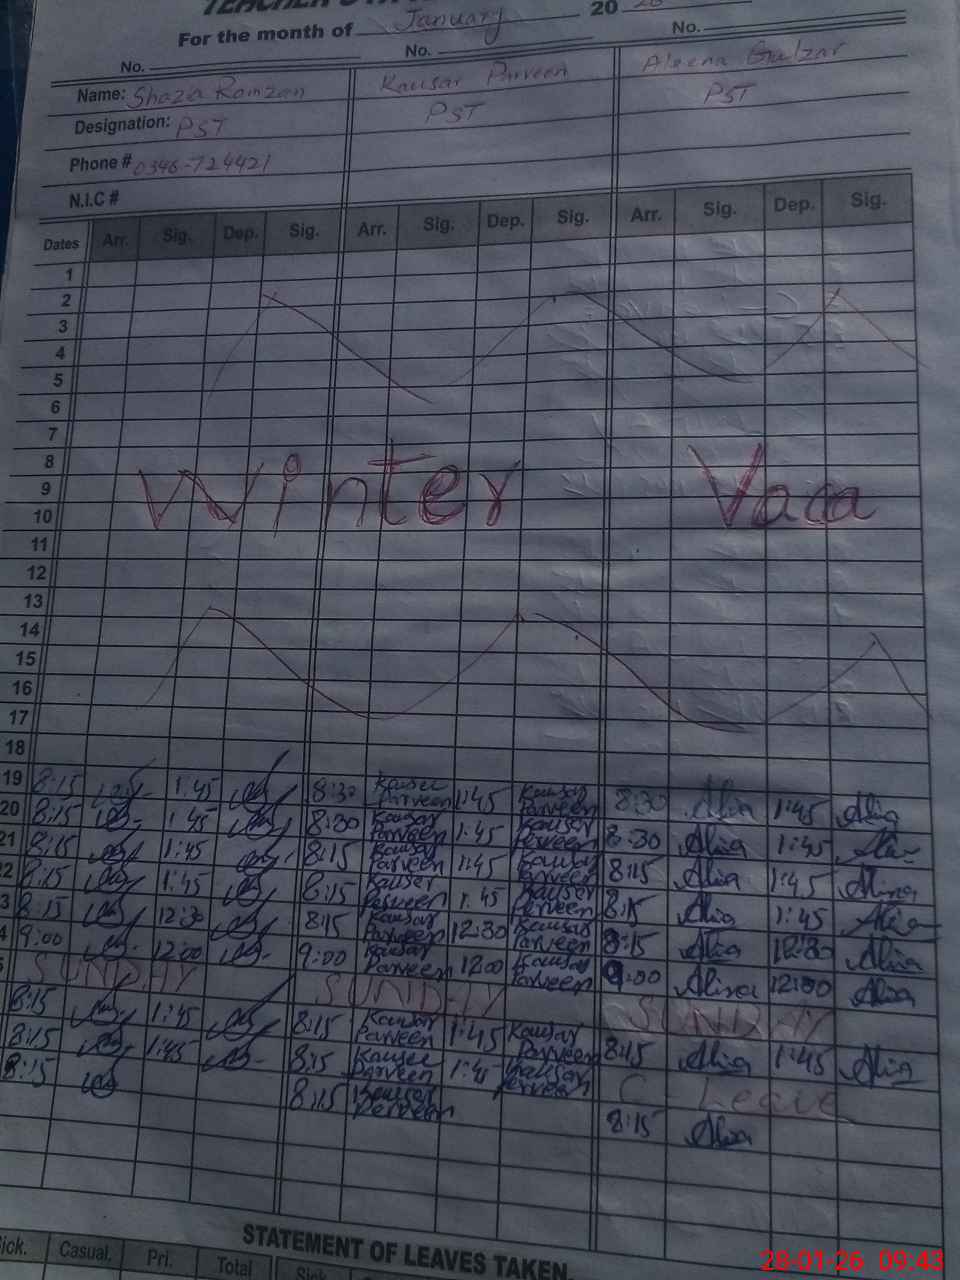 For the month of January 20
No. No. No.
Name: Shazia Ramzan Kausar Parveen Aleena Gulzar
Designation: PST PST PST
Phone # 0346-724421
N.I.C #
Dates Arr. Sig. Dep. Sig. Arr. Sig. Dep. Sig. Arr. Sig. Dep. Sig.
1
2
3
4
5
6
7
8
9
10
Winter Vaca
11
12
13
14
15
16
17
18
19 8:15 1:45 8:30 Kausar Parveen 1:45 Kausar Parveen 8:30 Alia 1:45 Alia
20 8:15 1:45 8:30 Kausar Parveen 1:45 Kausar Parveen 8:30 Alia 1:45
21 8:15 1:45 8:15 Kausar Parveen 1:45 Kausar Parveen 8:15 Alia 1:45
22 8:15 1:45 8:15 Kausar Parveen 1:45 Kausar Parveen 8:15 Alia 1:45
3 8:15 12:30 8:15 Kausar Parveen 12:30 Kausar Parveen 8:15 Alia 12:30 Alia
4 9:00 12:00 9:00 Kausar Parveen 12:00 Kausar Parveen 9:00 12:00 Alia
SUNDAY SUNDAY SUNDAY
8:15 1:45 8:15 Kausar Parveen 1:45 Kausar Parveen 8:15 Alia 1:45 Alia
8:15 1:45 8:15 Kausar Parveen 1:45 Kausar Parveen C Leave
8:15 8:15 Kausar Parveen 8:15 Alia
STATEMENT OF LEAVES TAKEN.
Sick. Casual. Pri. Total Sick
28-01-26 09:43